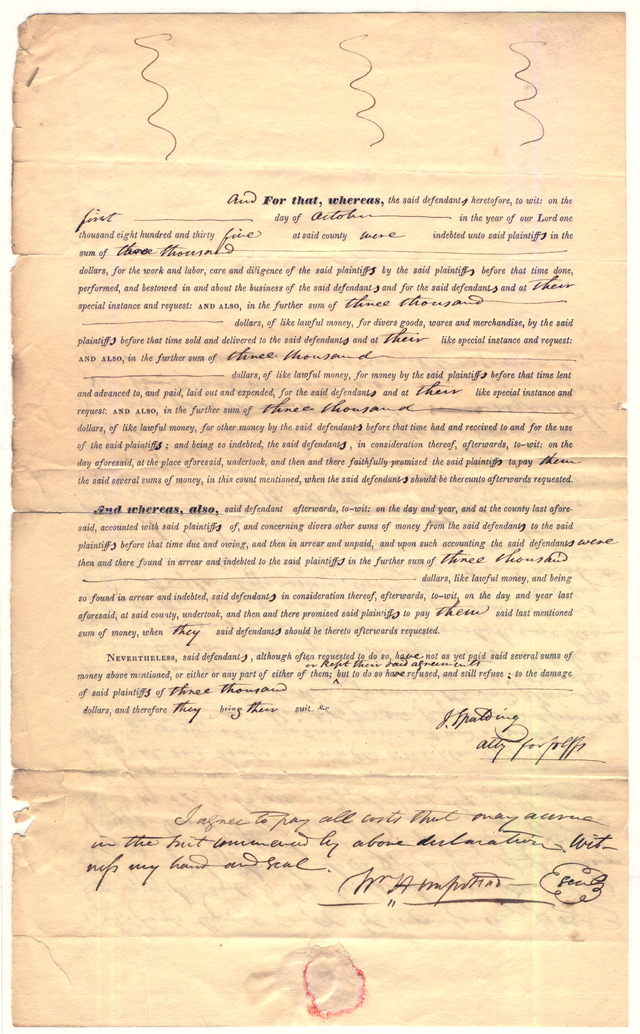 And For that, whereas, the said defendants heretofore, to wit: on the
first day of October in the year of our Lord one
thousand eight hundred and thirty five at said county were indebted unto said plaintiffs in the
sum of three thousand
dollars, for the work and labor, care and diligence of the said plaintiffs by the said plaintiffs before that time done,
performed, and bestowed in and about the business of the said defendants and for the said defendants and at their
special instance and request: AND ALSO, in the further sum of three thousand
dollars, of like lawful money, for divers goods, wares and merchandise, by the said
plaintiffs before that time sold and delivered to the said defendants and at their like special instance and request:
AND ALSO, in the further sum of three thousand
dollars, of like lawful money, for money by the said plaintiffs before that time lent
and advanced to, and paid, laid out and expended, for the said defendants and at their like special instance and
request: AND ALSO, in the further sum of three thousand
dollars, of like lawful money, for other money by the said defendants before that time had and received to and for the use
of the said plaintiffs; and being so indebted, the said defendants, in consideration thereof, afterwards, to-wit: on the
day aforesaid, at the place aforesaid, undertook, and then and there faithfully promised the said plaintiffs to pay them
the said several sums of money, in this count mentioned, when the said defendants should be thereunto afterwards requested.
And whereas, also, said defendant afterwards, to-wit: on the day and year, and at the county last afore-
said, accounted with said plaintiffs of, and concerning divers other sums of money from the said defendants to the said
plaintiffs before that time due and owing, and then in arrear and unpaid, and upon such accounting the said defendants were
then and there found in arrear and indebted to the said plaintiffs in the further sum of three thousand
dollars, like lawful money, and being
so found in arrear and indebted, said defendants in consideration thereof, afterwards, to-wit, on the day and year last
aforesaid, at said county, undertook, and then and there promised said plaintiffs to pay them said last mentioned
sum of money, when they said defendants should be thereto afterwards requested.
NEVERTHELESS, said defendants, although often requested to do so, have not as yet paid said several sums of
or kept their said agreements
money above mentioned, or either or any part of either of them; but to do so have refused, and still refuse; to the damage
of said plaintiffs of three thousand
dollars, and therefore they bring their suit &c
J. Spalding
atty for plffs
I agree to pay all costs that may accrue
in the suit commenced by above declaration. Wit-
ness my hand and seal.
Wm Hempstead Seal